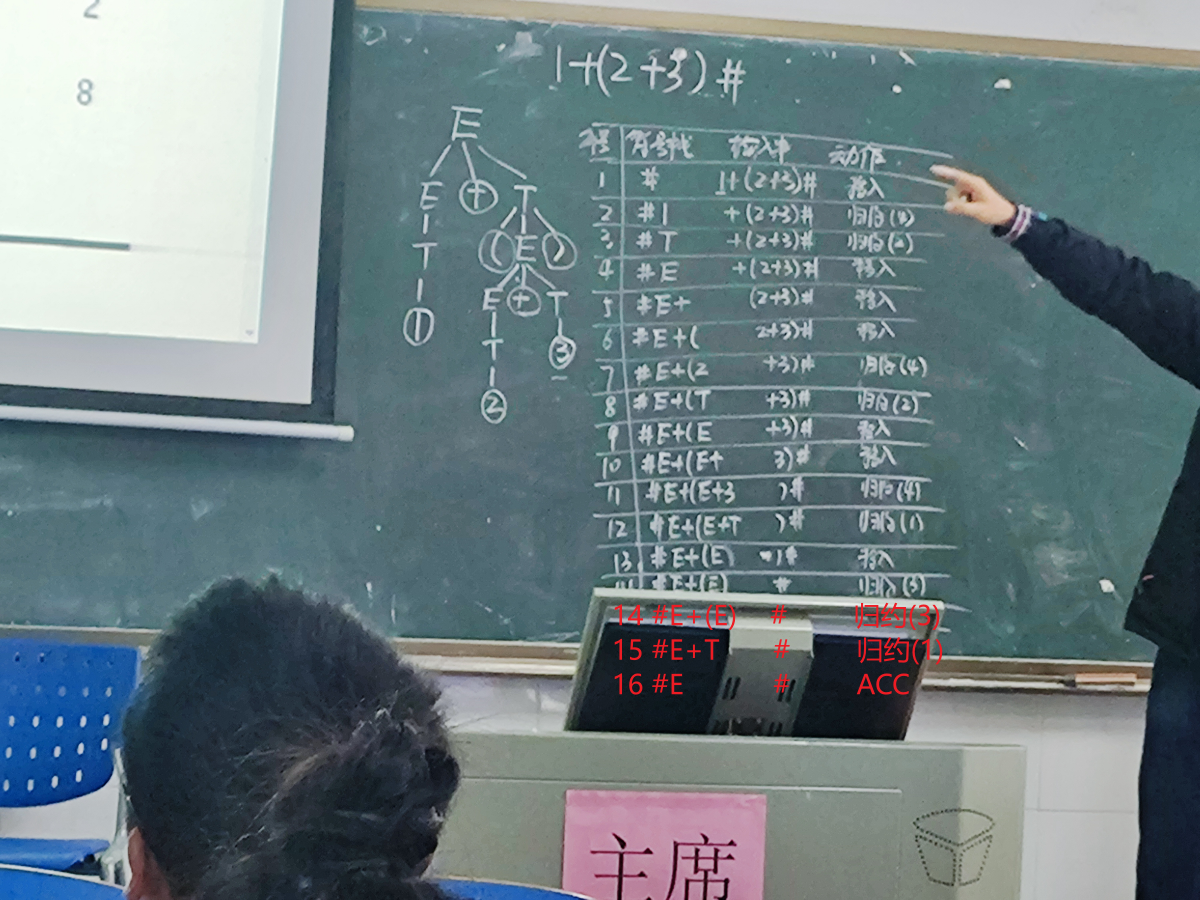 2
8
1+(2+3)#
E
E + T
T ( E )
1 E + T
T 3
2
符号栈 输入串 动作
1 # 1+(2+3)# 移入
2 #1 +(2+3)# 归约(4)
3 #T +(2+3)# 归约(2)
4 #E +(2+3)# 移入
5 #E+ (2+3)# 移入
6 #E+( 2+3)# 移入
7 #E+(2 +3)# 归约(4)
8 #E+(T +3)# 归约(2)
9 #E+(E +3)# 移入
10 #E+(E+ 3)# 移入
11 #E+(E+3 )# 归约(4)
12 #E+(E+T )# 归约(1)
13 #E+(E )# 移入
14 #E+(E) # 归约(3)
14 #E+(E) # 归约(3)
15 #E+T # 归约(1)
16 #E # ACC
主席